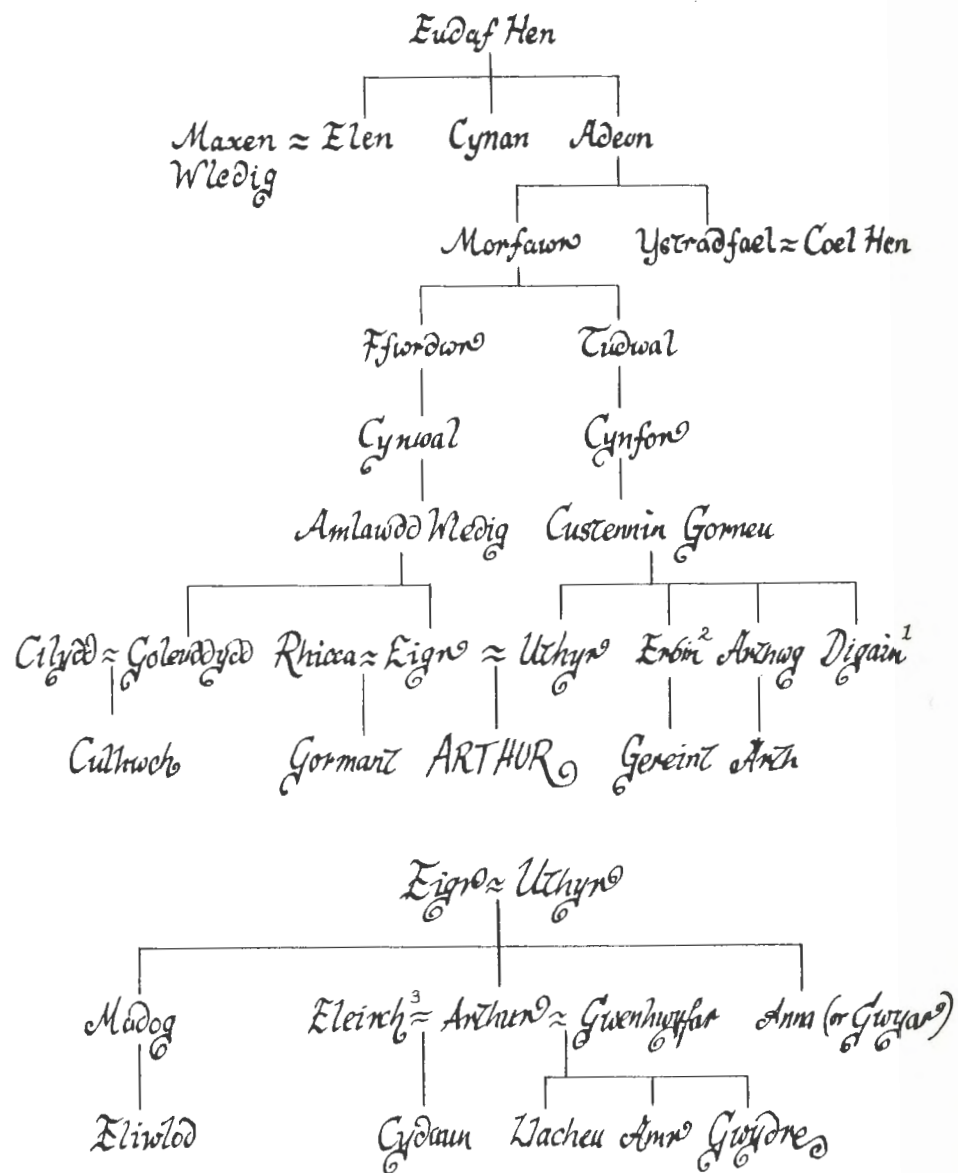 Eudaf Hen
Maxen ≈ Elen Cynan Adeon
Wledig
Morfawr Ystradfael ≈ Coel Hen
Ffwrdwr Tudwal
Cynwal Cynfor
Amlawdd Wledig Custennin Gorneu
Cilydd ≈ Goleuddydd Rhicca ≈ Eigr ≈ Uthyr Erbin² Arthwg Digain¹
Culhwch Gormant ARTHUR Gereint Arth
Eigr ≈ Uthyr
Madog Eleirch³ ≈ Arthur ≈ Gwenhwyfar Anna (or Gwyar)
Eliwlod Cydaun Llacheu Amr Gwydre